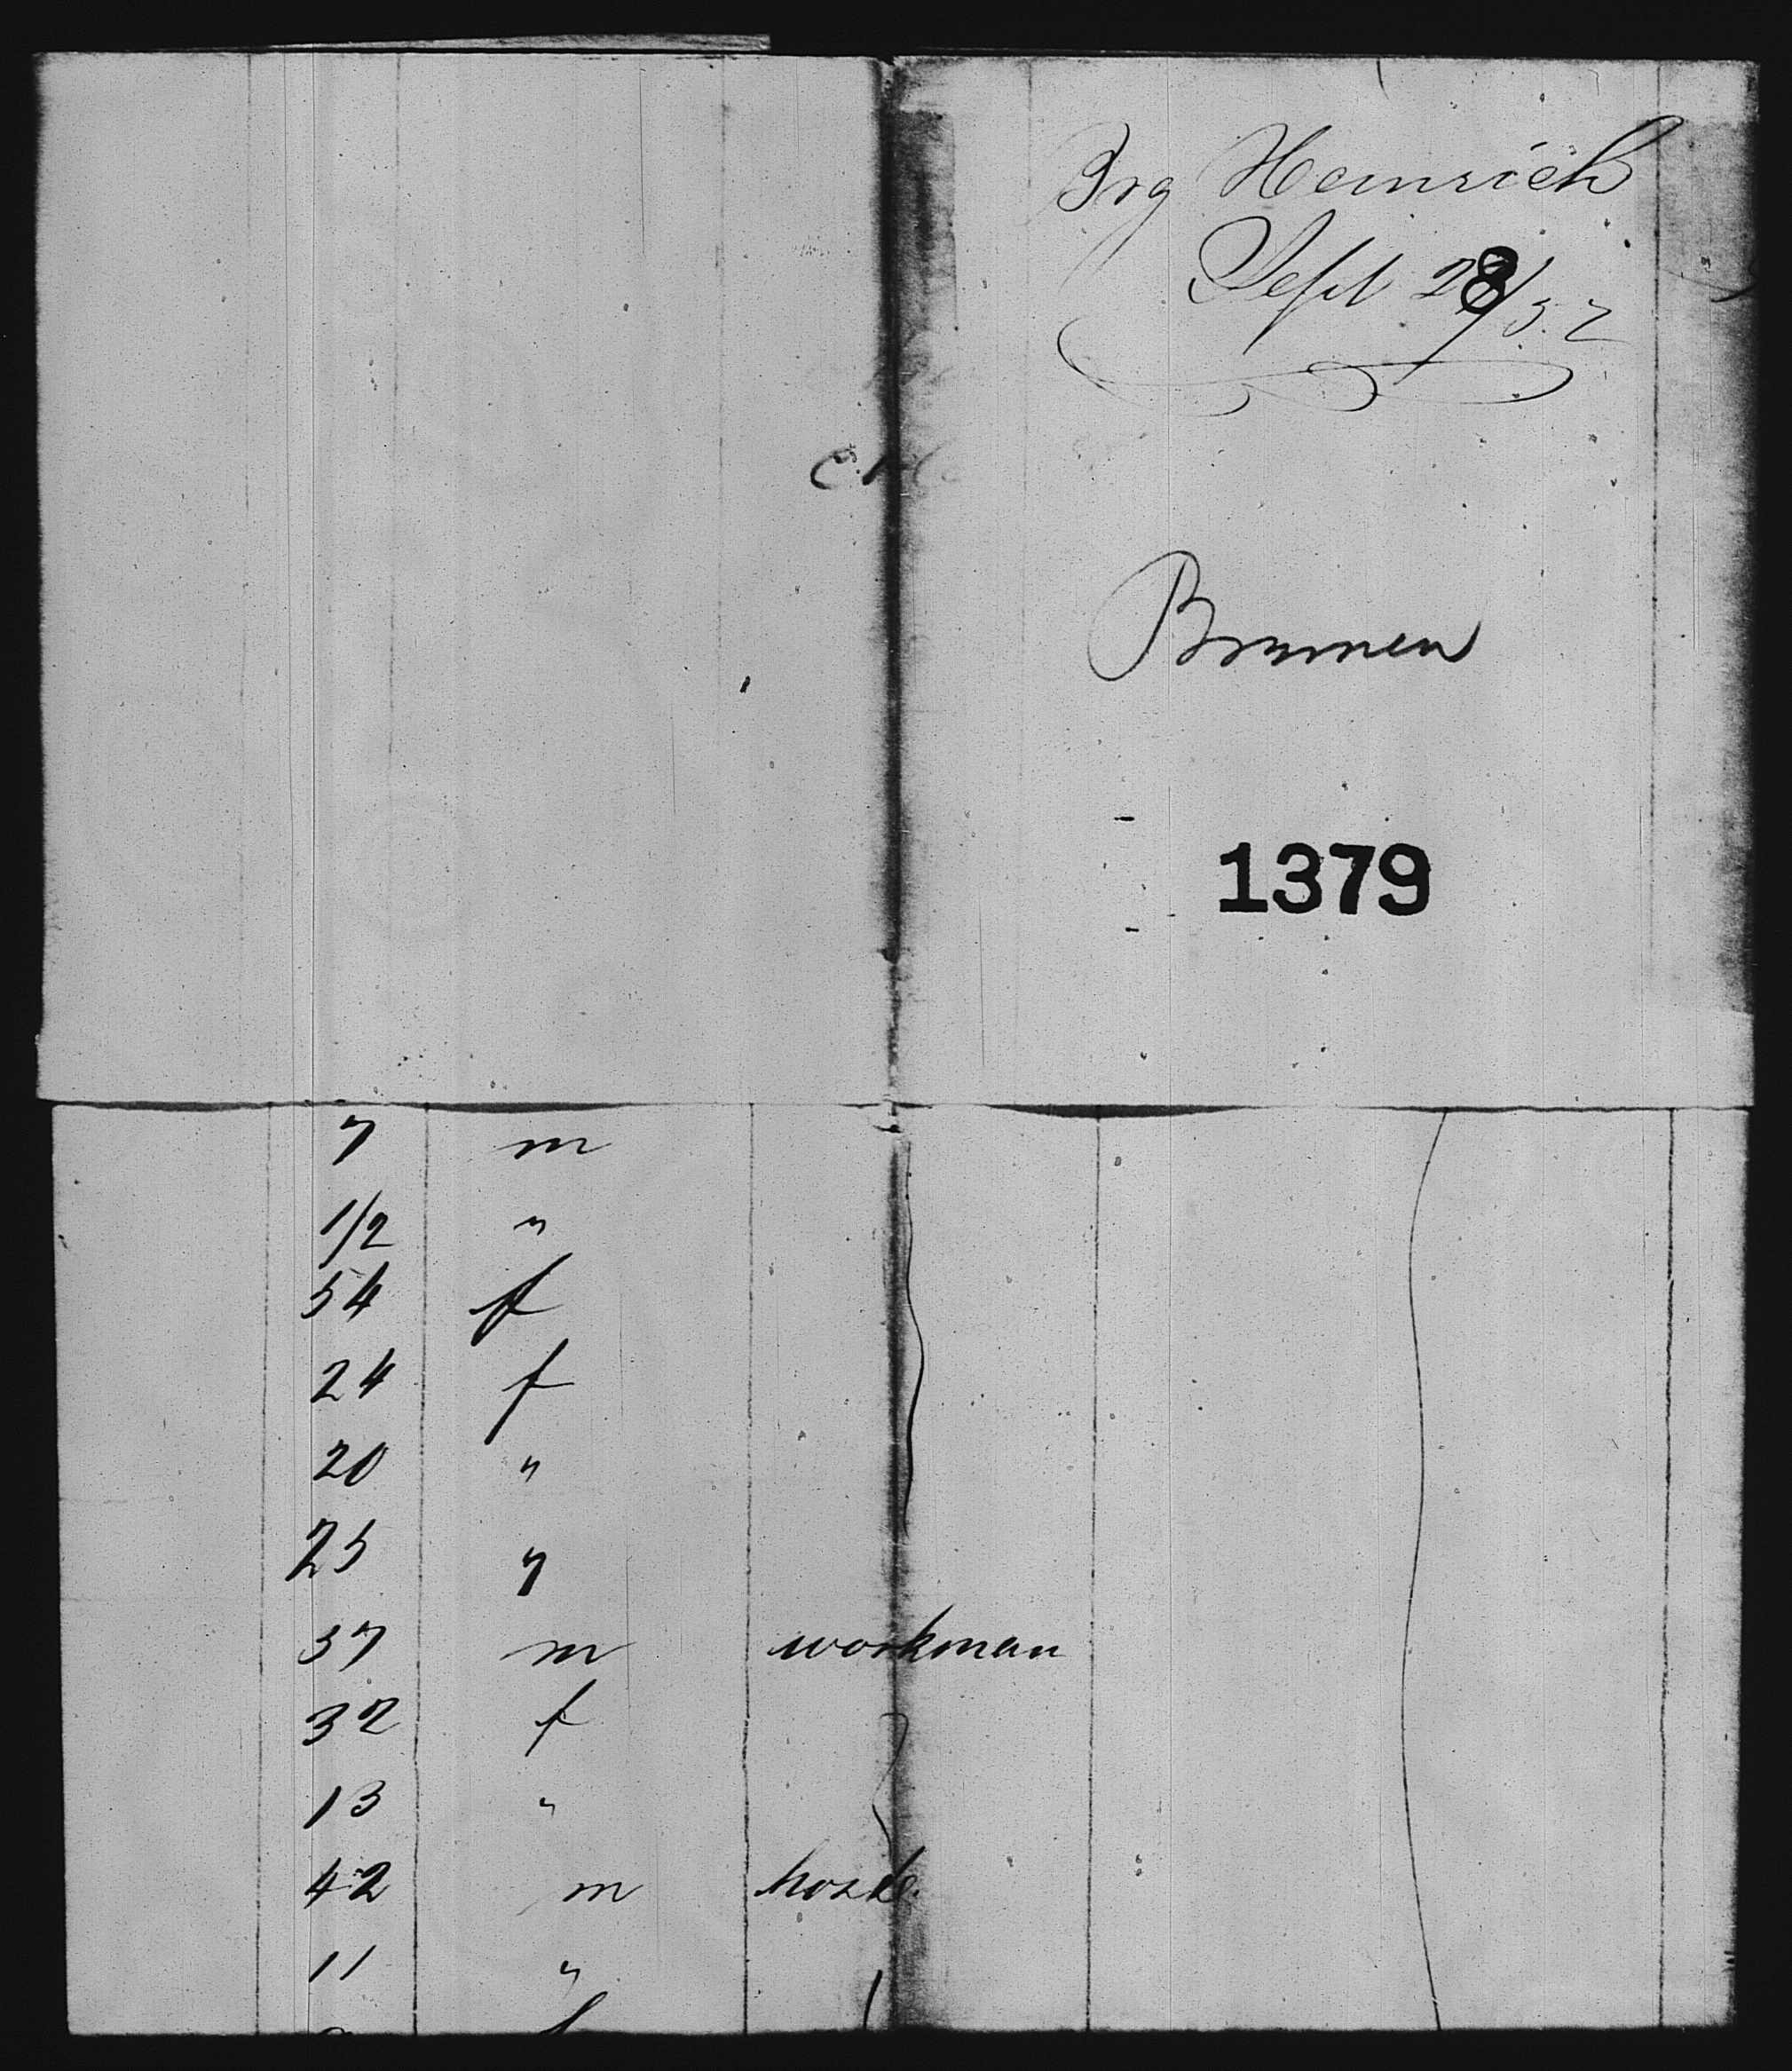 Brg Heinrich
Sept 28/52
Bremen
1379
7 m
1/2 "
54 f
24 f
20 "
25 "
37 m workman
32 f
13 "
42 m
11 "